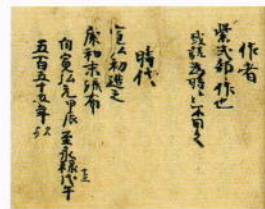 作者
紫式部作也
或説為時云不用之
時代
寛弘初造之
康和末流布
自寛弘元甲辰至永禄戊午
五百五十五年